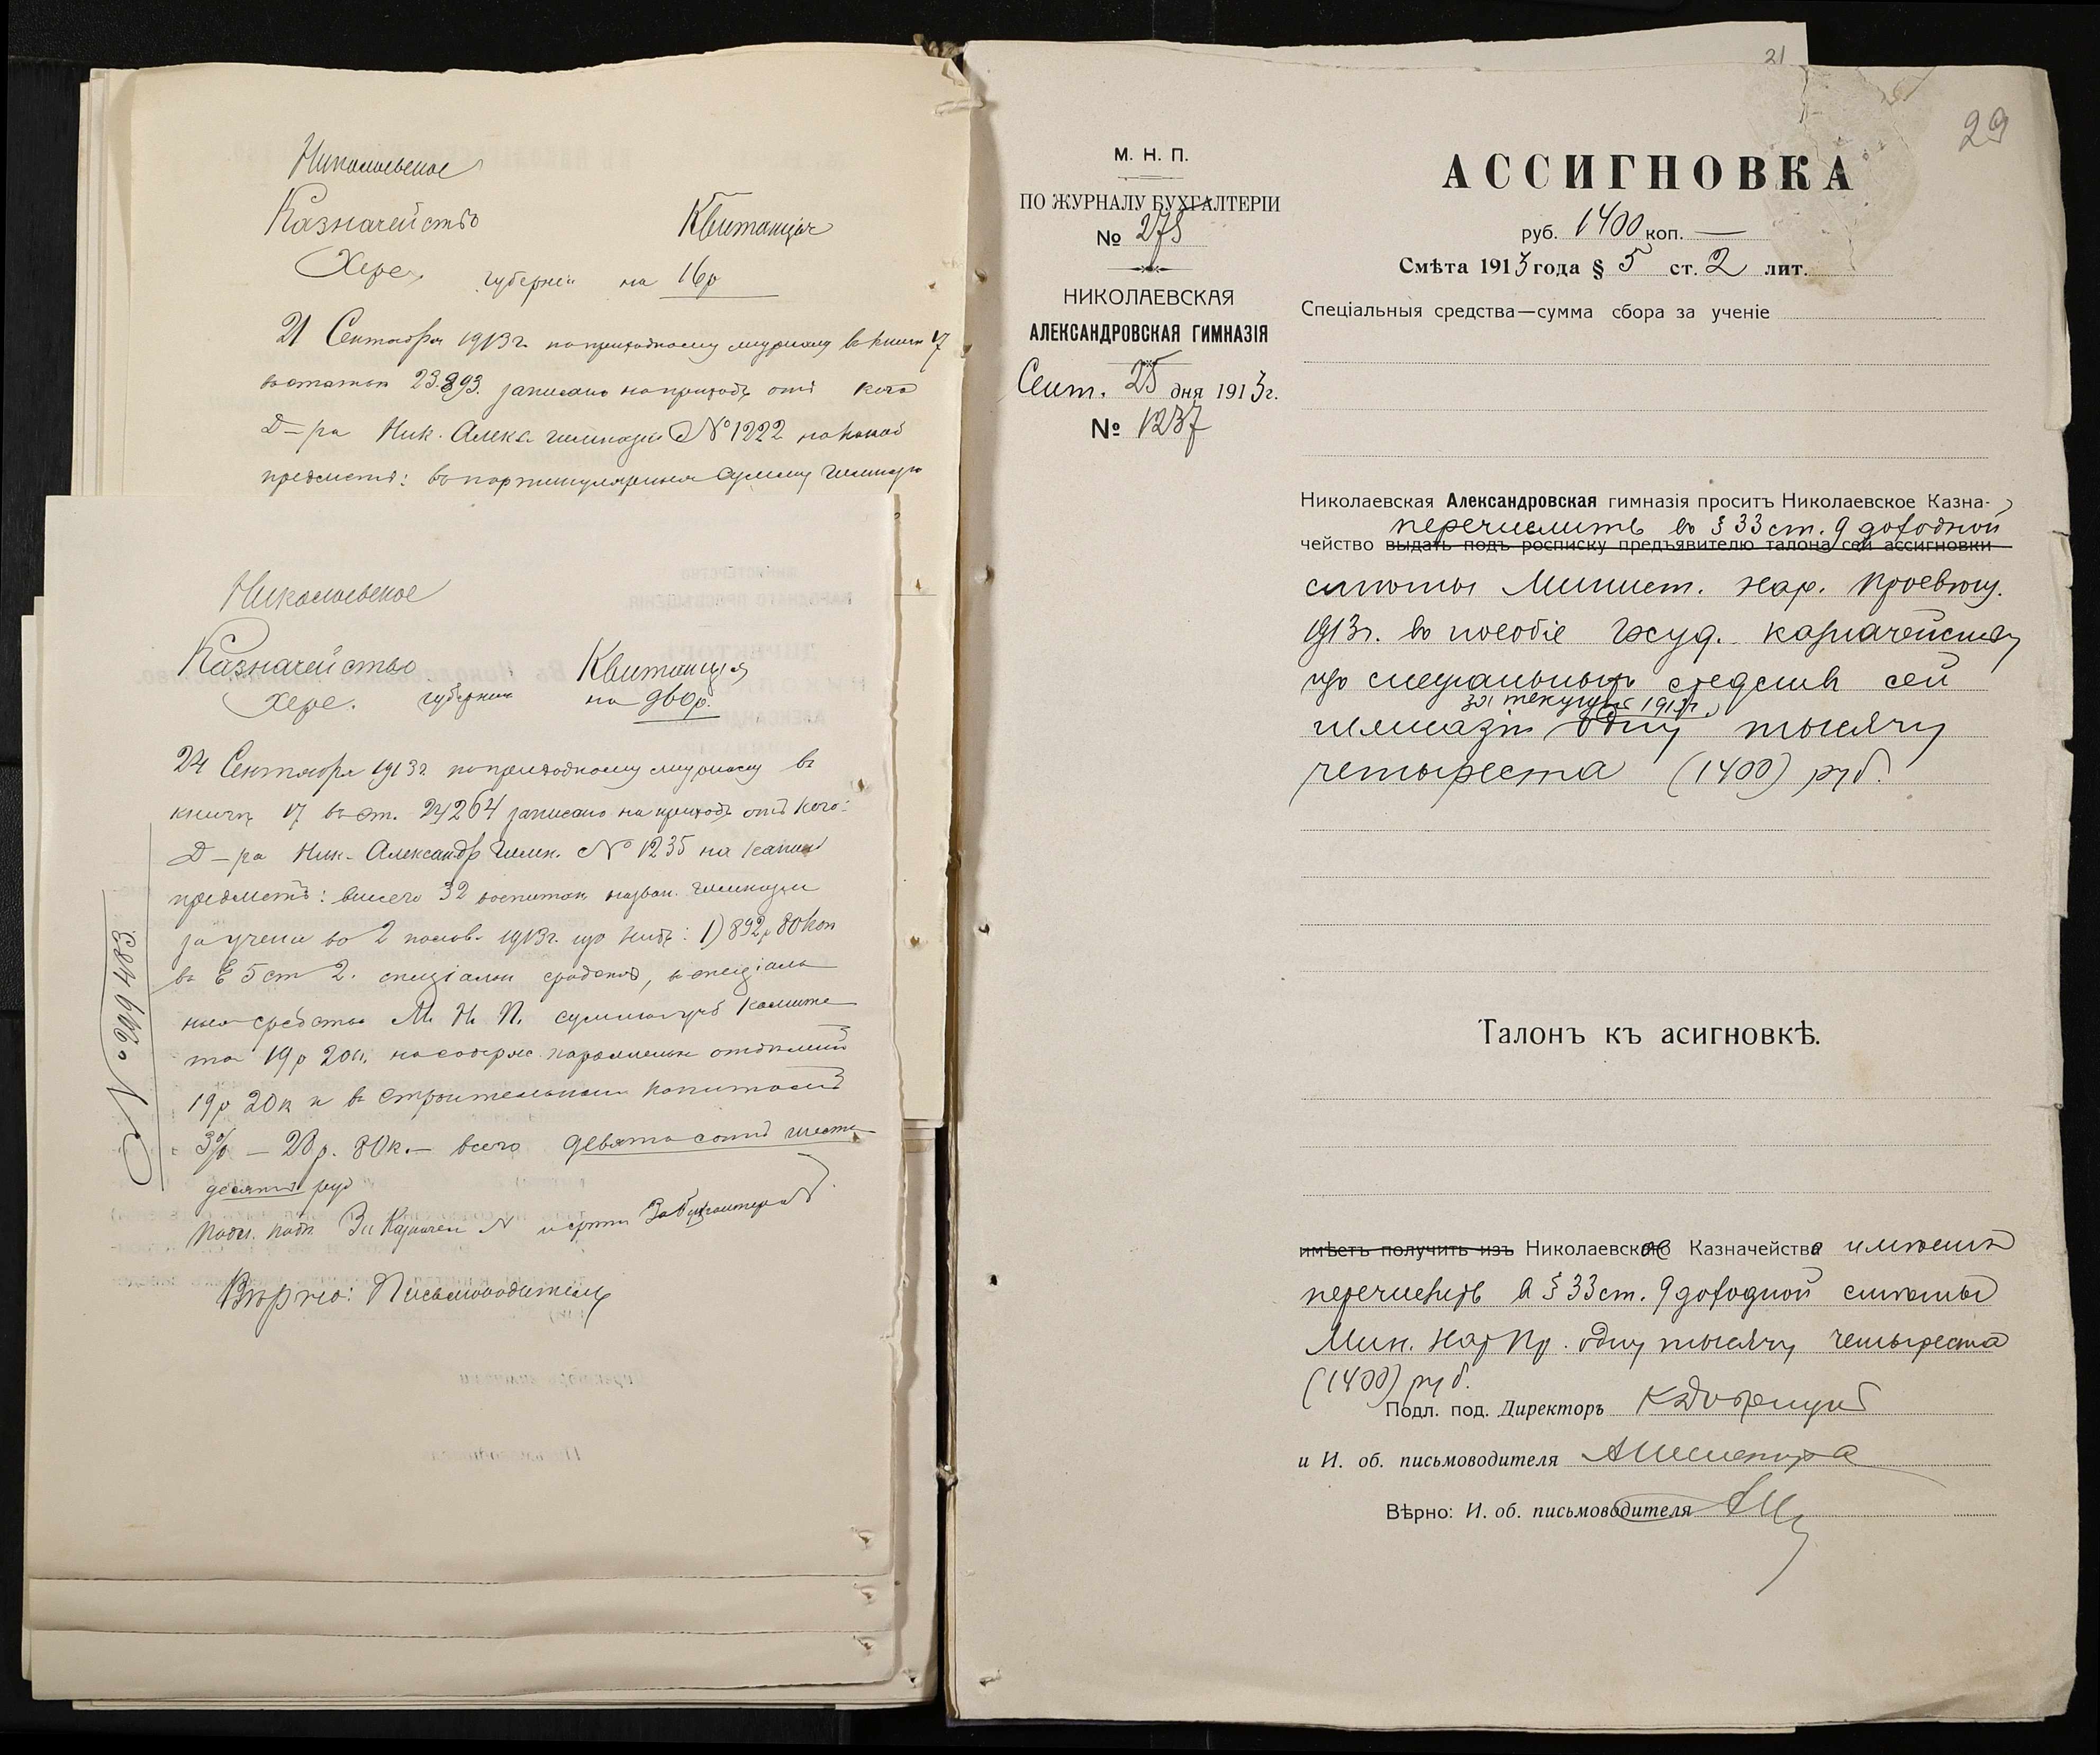 Николаевское
Казначейство Квитанція
Хере. губерніи на 16р
21 Сентября 1913г. по приходному журналу въ книги 17
въ статьи 23.893. записано на приходъ отъ кого
Д-ра Ник. Алекс. гимназіи № 1222 на какой
предметъ: въ партикулярныя суммы гимназіи
Николаевское
Казначейство Квитанція
Херс. губерніи на 960р.
24 Сентября 1913г. по приходному журналу въ
книгу 17 въ ст. 24264 записано на приходъ отъ кого:
Д-ра Ник. Александр. гимн. № 1235 на какой
предметъ: внесено 32 воспитан. назван. гимназіи
за ученіе во 2 полов. 1913г. изъ нихъ: 1) 892р 80коп
въ § 5 ст 2. спеціальн средства, въ спеціаль
ныя средства М. Н. П. суммы уч Комите
та 19р 20к. на содерж. параллельн отдѣленій
19р 20к и въ строительный капиталъ
3% — 28р. 80к. — всего девятьсотъ шесть
десятъ руб
Подл. подп. За Казначея и скрѣпи За бухгалтера
Вѣрно: Письмоводитель
31
29
М. Н. П.
ПО ЖУРНАЛУ БУХГАЛТЕРІИ
№ 278
НИКОЛАЕВСКАЯ
АЛЕКСАНДРОВСКАЯ ГИМНАЗІЯ
Сент. 25 дня 1913г.
№ 1237
АССИГНОВКА
руб. 1400 коп. —
Смѣта 1913 года § 5 ст. 2 лит.
Спеціальныя средства—сумма сбора за ученіе
Николаевская Александровская гимназія проситъ Николаевское Казна-
перечислить въ § 33 ст. 9 доходной
чейство выдать подъ росписку предъявителю талона сей ассигновки
смѣты Минист. Нар. Просвѣщ.
1913г. въ пособіе Госуд. казначейству
изъ спеціальныхъ средствъ сей
за текущій 1913г.
гимназіи одну тысячу
четыреста (1400) руб.
Талонъ къ асигновкѣ.
имѣетъ получить изъ Николаевское Казначейство имѣетъ
перечислить въ § 33 ст. 9 доходной смѣты
Мин. Нар. Пр. одну тысячу четыреста
(1400) руб.
Подл. под. Директоръ
и И. об. письмоводителя
Вѣрно: И. об. письмоводителя